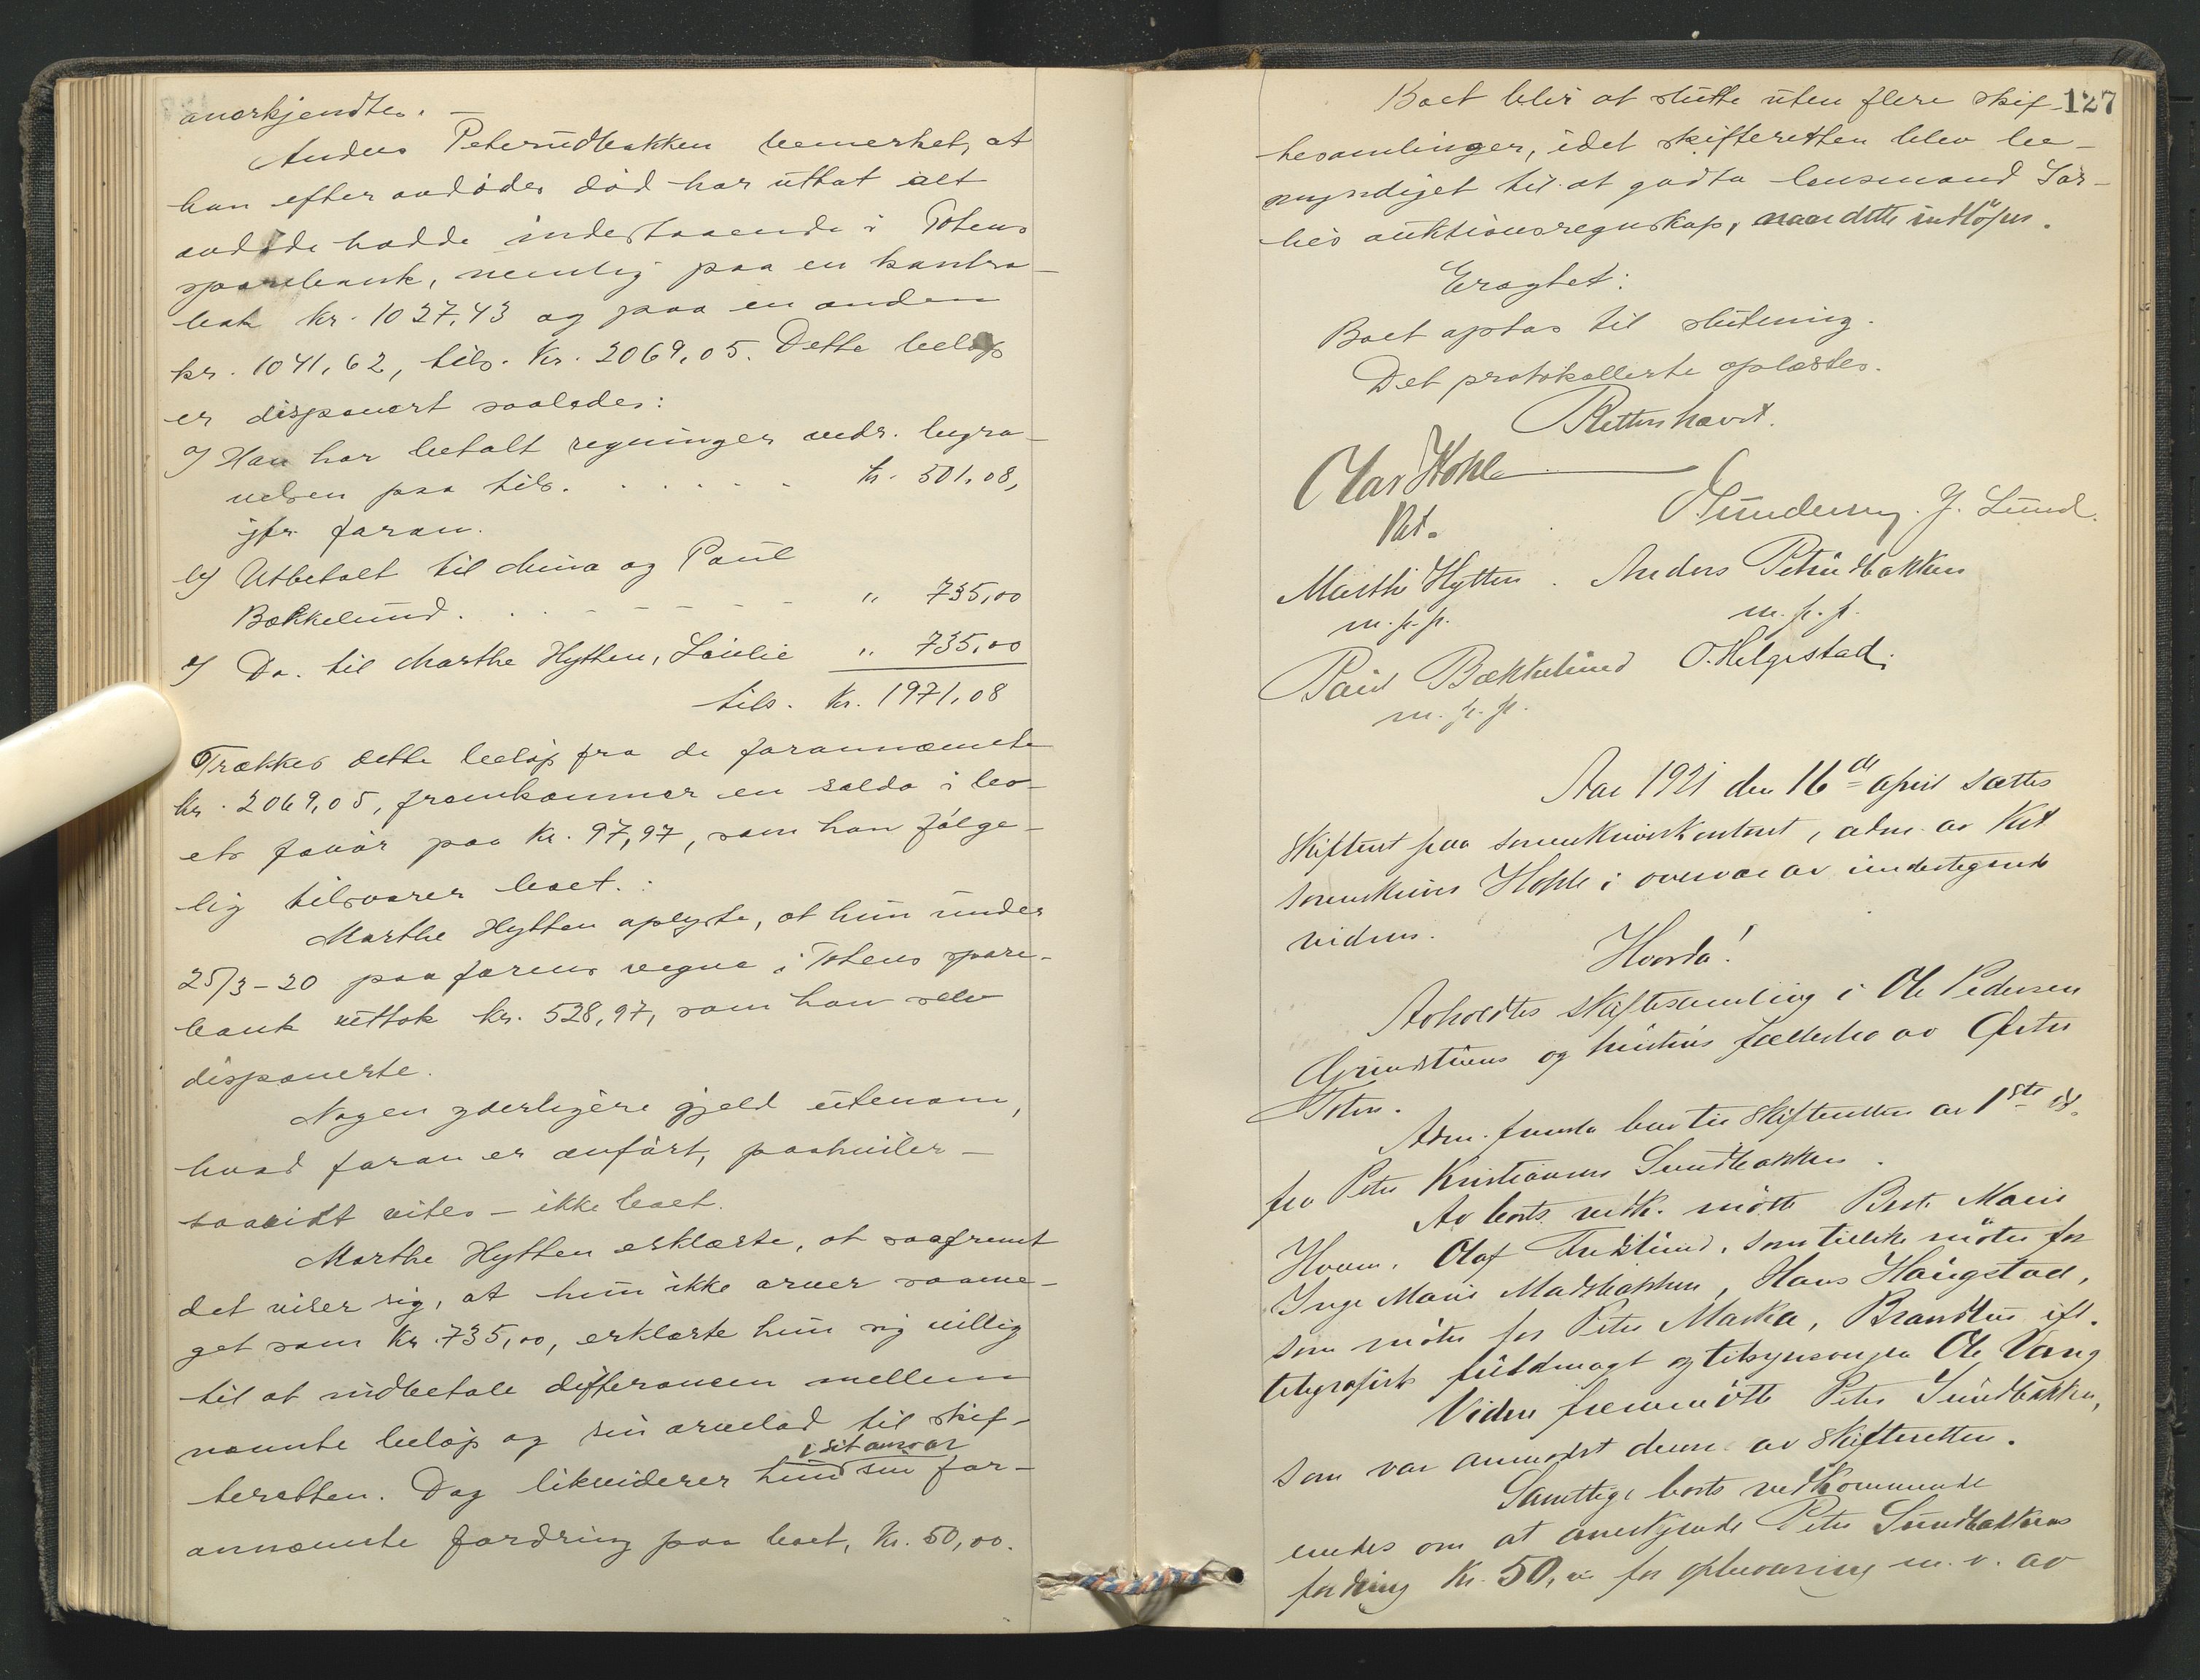 anerkjendtes. —
Anders Peterudbakken bemerket, at
han efter avdødes død har uttat alt
avdøde hadde indestaaende i Totens
sparebank, nemlig paa en kontra-
bok kr. 1027,43 og paa en anden
kr. 1041,62, tils. kr. 2069,05. Dette beløp
er disponert saaledes:
a) Han har betalt regninger vedr. begra-
velsen paa tils. . . . . . . kr. 501,08,
jfr. foran.
b) Utbetalt til Mina og Paul
Bækkelund. . . - - - - - " 735,00
c) Do. til Marthe Hytten, Laulie " 735,00
tils. kr. 1971,08
Trækkes dette beløp fra de forannævnte
kr. 2069,05, fremkommer en saldo i bo-
ets favør paa kr. 97,97, som han følge-
lig tilsvarer boet.
Marthe Hytten oplyste, at hun under
25/3-20 paa farens vegne i Totens spare-
bank uttok kr. 528,97, som han selv
disponerte.
Nogen yderligere gjeld utenom,
hvad foran er anført, paahviler —
saavidt vites — ikke boet.
Marthe Hytten erklærte, at saafremt
det viser sig, at hun ikke arver saame-
get som kr. 735,00, erklærte hun sig villig
til at indbetale differansen mellem
nævnte beløp og sin arvelod til skif-
i sit ansvar
teretten. Dog likviderer hun sin for-
annævnte fordring paa boet, kr. 50,00.
127
Boet blir at slutte uten flere skif-
tesamlinger, idet skifteretten blev be-
myndiget til at godta lensmand Sør-
lies auktionsregnskap, naar dette indløper.
Eragtet:
Boet optas til slutning.
Det protokollerte oplæstes.
Retten hævet.
Olav Hohle
kst.
Gunderny. J. Lund.
Marthe Hytten . Anders Peterudbakken
m.p.p. m.p.p.
Paul Bækkelund O. Helgestad.
m.p.p.
Aar 1921 den 16de april sattes
skifteret paa sorenskriverkontoret, adm. av kst
sorenskriver Hohle i overvær av undertegnede
vidner.
Hvorda!
Avholdtes skiftesamling i Ole Pedersen
Grindstuens og hustrus fællesbo av Østre
Toten.
Adm. fremla brev til skifteretten av 1ste ds.
fra Peter Kristiansen Sundbakken.
Av boets vedk. møtte Berte Marie
Hoom, Olaf Fredslund, som tillike møter for
Inge Marie Madsbakken, Hans Haugstad,
som møter for Peter Marka, Brandbu ifl.
telegrafisk fuldmagt og tilsynsmand Ole Vang
Viden fremmøtte Peter Sundbakken,
som var anmodet derom av skifteretten.
Samtlige boets vedkommende
enedes om at anerkjende Peter Sundbakkens
fordring kr. 50,00 for opbevaring m.v. av